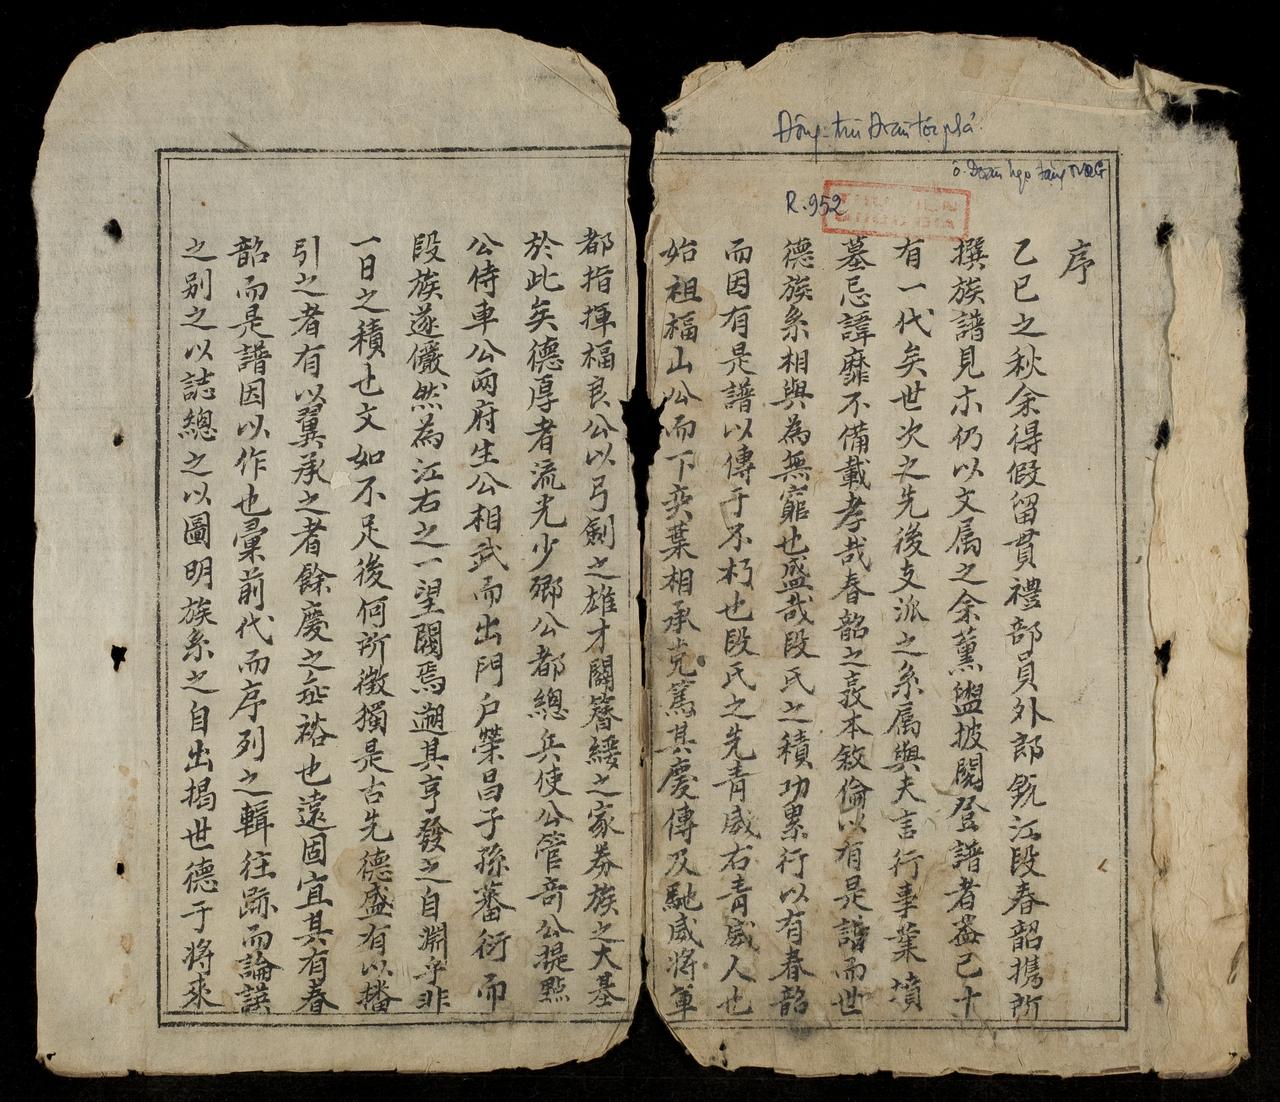 Đông-trù Đoàn tộc phả.
R.952
序
乙巳之秋余得假留貫禮部員外郎銳江段春韶攜所
撰族譜見示仍以文属之余薰盥披閱登譜者蓋已十
有一代矣世次之先後支派之系属與夫言行事業墳
墓忌諱靡不備載孝哉春韶之敦本敘倫以有是譜而世
德族系相與為無窮也盛哉段氏之積功累行以有春韶
而因有是譜以傳于不朽也段氏之先青威右青威人也
始祖福山公而下奕葉相承克篤其慶傳及馳威將軍
都指揮福良公以弓劍之雄才闢簪緩之家券族之大基
於此矣德厚者流光少卿公都總兵使公管奇公提點
公侍車公兩府生公相武而出門戶榮昌子孫蕃衍而
段族遂儼然為江右之一望閥焉遡其亨發之自淵乎非
一日之積也文如不足後何所徵獨是古先德盛有以播
引之者有以翼承之者餘慶之垂裕也遠固宜其有春
韶而是譜因以作也彙前代而序列之輯往跡而論譔
之别之以誌總之以圖明族系之自出揭世德于將來